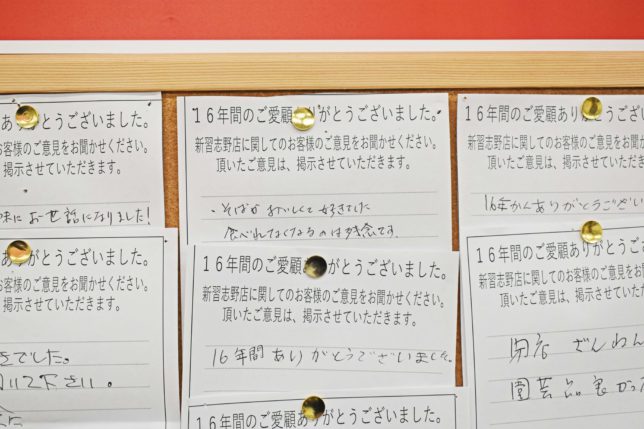 ありがとうございました。
お客様のご意見をお聞かせください。
掲示させていただきます。
お世話になりました!
ありがとうございました。
お客様のご意見をお聞かせください。
掲示させていただきます。
でした。
下さい。
16年間のご愛顧ありがとうございました。
新習志野店に関してのお客様のご意見をお聞かせください。
頂いたご意見は、掲示させていただきます。
・そばがおいしくて好きでした
食べれなくなるのは残念です。
16年間のご愛顧ありがとうございました。
新習志野店に関してのお客様のご意見をお聞かせください。
頂いたご意見は、掲示させていただきます。
16年間ありがとうございました。
16年間のご愛顧ありがとうございました。
16年間のご愛顧ありがとうございました
新習志野店に関してのお客様のご意見をお聞か
頂いたご意見は、掲示させていただき
16年かんありがとうござい
16年間のご愛顧ありがとうござ
新習志野店に関してのお客様のご意見を
頂いたご意見は、掲示させてい
閉店 ざんねん
園芸品良かっ